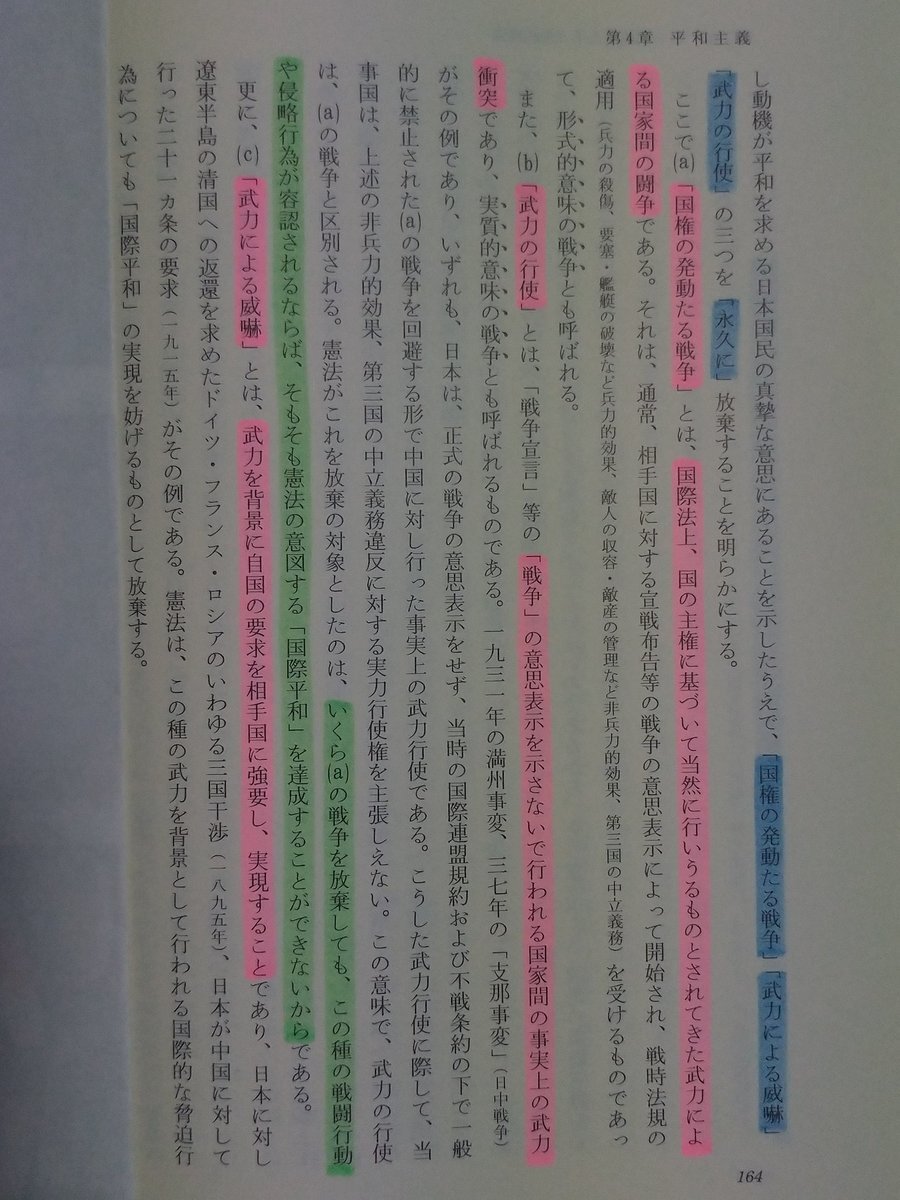 第4章 平和主義
し動機が平和を求める日本国民の真摯な意思にあることを示したうえで、「国権の発動たる戦争」「武力による威嚇」
「武力の行使」の三つを「永久に」放棄することを明らかにする。
ここで(a)「国権の発動たる戦争」とは、国際法上、国の主権に基づいて当然に行いうるものとされてきた武力によ
る国家間の闘争である。それは、通常、相手国に対する宣戦布告等の戦争の意思表示によって開始され、戦時法規の
適用（兵力の殺傷、要塞・艦艇の破壊など兵力的効果、敵人の収容・敵産の管理など非兵力的効果、第三国の中立義務）を受けるものであっ
て、形式的意味の戦争とも呼ばれる。
また、(b)「武力の行使」とは、「戦争宣言」等の「戦争」の意思表示を示さないで行われる国家間の事実上の武力
衝突であり、実質的意味の戦争とも呼ばれるものである。一九三一年の満州事変、三七年の「支那事変」（日中戦争）
がその例であり、いずれも、日本は、正式の戦争の意思表示をせず、当時の国際連盟規約および不戦条約の下で一般
的に禁止された(a)の戦争を回避する形で中国に対し行った事実上の武力行使である。こうした武力行使に際して、当
事国は、上述の非兵力的効果、第三国の中立義務違反に対する実力行使権を主張しえない。この意味で、武力の行使
は、(a)の戦争と区別される。憲法がこれを放棄の対象としたのは、いくら(a)の戦争を放棄しても、この種の戦闘行動
や侵略行為が容認されるならば、そもそも憲法の意図する「国際平和」を達成することができないからである。
更に、(c)「武力による威嚇」とは、武力を背景に自国の要求を相手国に強要し、実現することであり、日本に対し
遼東半島の清国への返還を求めたドイツ・フランス・ロシアのいわゆる三国干渉（一八九五年）、日本が中国に対して
行った二十一カ条の要求（一九一五年）がその例である。憲法は、この種の武力を背景として行われる国際的な脅迫行
為についても「国際平和」の実現を妨げるものとして放棄する。
164